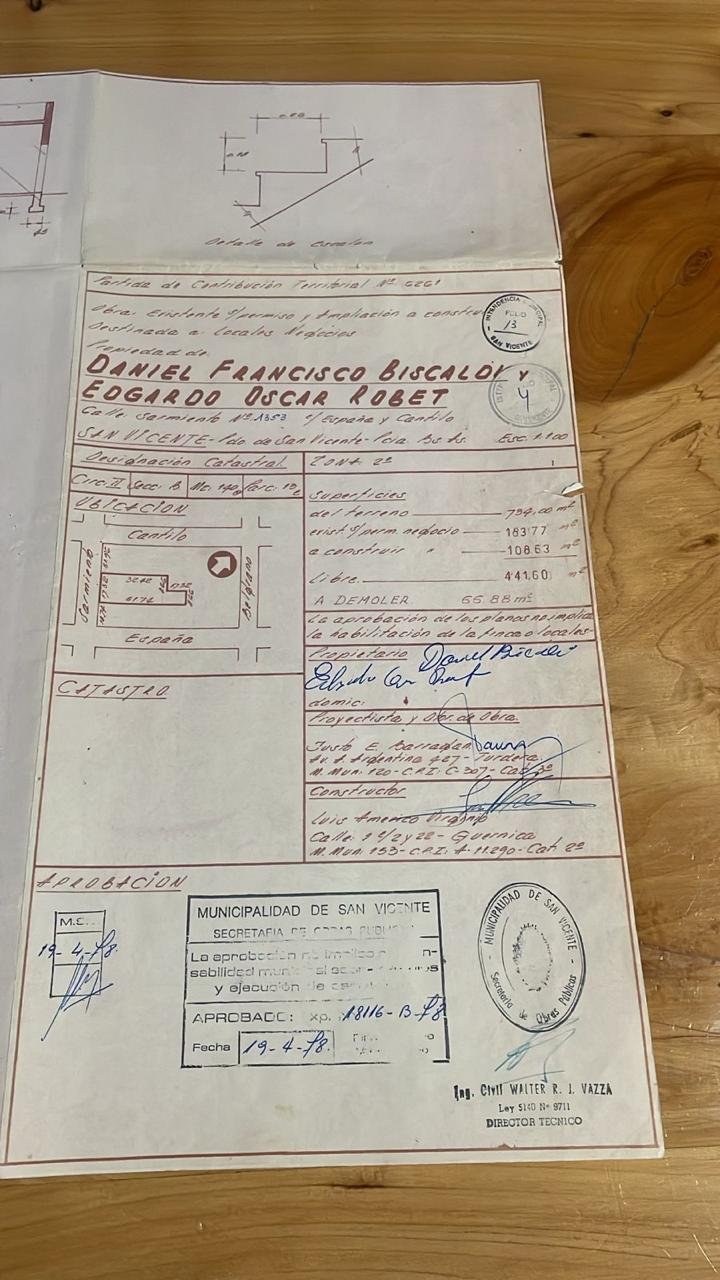 Detalle de escalón
Partida de Contribución Territorial Nº 6261
Obra: Existente s/permiso y Ampliación a construir
Destinada a: Locales Negocios
INTENDENCIA MUNICIPAL
FOLIO
13
SAN VICENTE
Propiedad de:
DANIEL FRANCISCO BISCALDI Y
EDGARDO OSCAR ROBET
4
Calle: Sarmiento Nº 1353 e/España y Cantilo
SAN VICENTE- Pdo. de San Vicente- Pcia Bs. As. Esc. 1:100
Designación Catastral ZONA 2ª
Circ: II Secc: B Mz: 140
UBICACIÓN
Cantilo
Sarmiento
Belgrano
España
32.42
61.74
17.32
Superficies
del terreno 734,00 m²
exist. s/perm. negocio 183.77 m²
a construir " 108.63 m²
Libre 441.60 m²
A DEMOLER 66.88 m²
La aprobación de los planos no implica
la habilitación de la finca o locales-
Propietario
Daniel Biscaldi
domic:
CATASTRO
Proyectista y Dir. de Obra.
Justo E. Barragan
Av. A. Argentina 427- Turdera
M. Mun: 120- C.P.I. C-307- Cat. 3ª
Constructor
Luis Americo Virginio
Calle: 1 e/2 y 22- Guernica
M. Mun: 153- C.P.I. A-11.290- Cat. 2ª
APROBACIÓN
19-4-78.
MUNICIPALIDAD DE SAN VICENTE
SECRETARIA DE OBRAS PUBLICAS
La aprobación no implica
y ejecución de
APROBADO: Exp. 18116-B-78
Fecha 19-4-78.
MUNICIPALIDAD DE SAN VICENTE
Secretaría de Obras Públicas
Ing. Civil WALTER R. J. VAZZA
Ley 5140 Nº 9711
DIRECTOR TECNICO